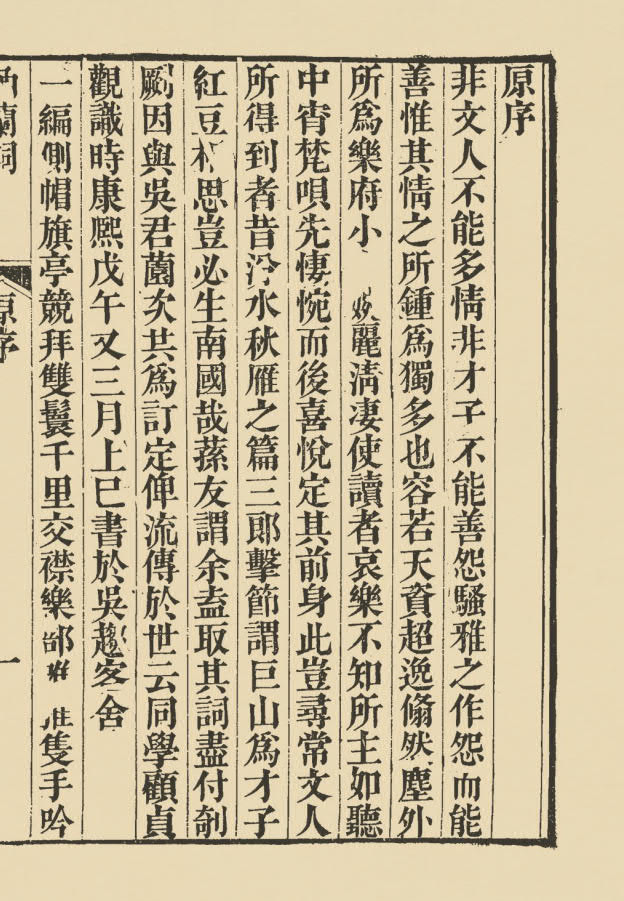 原序
非文人不能多情非才子不能善怨騷雅之作怨而能
善惟其情之所鍾爲獨多也容若天資超逸翛然塵外
所爲樂府小麗淸凄使讀者哀樂不知所主如聽
中宵梵唄先悽惋而後喜悅定其前身此豈尋常文人
所得到者昔汾水秋雁之篇三郎擊節謂巨山爲才子
紅豆相思豈必生南國哉蓀友謂余盍取其詞盡付剞
劂因與吳君薗次共爲訂定俾流傳於世云同學顧貞
觀識時康熙戊午又三月上巳書於吳趨客舍
一編側帽旗亭競拜雙鬟千里交襟樂部隻手吟
蘭詞 原序 一